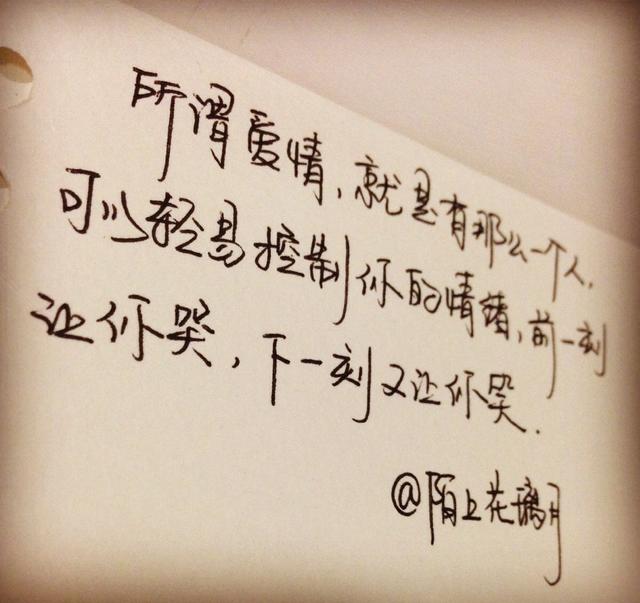 所谓爱情,就是有那么一个人,
可以轻易控制你的情绪,前一刻
让你哭,下一刻又让你笑.
@陌上花璃月